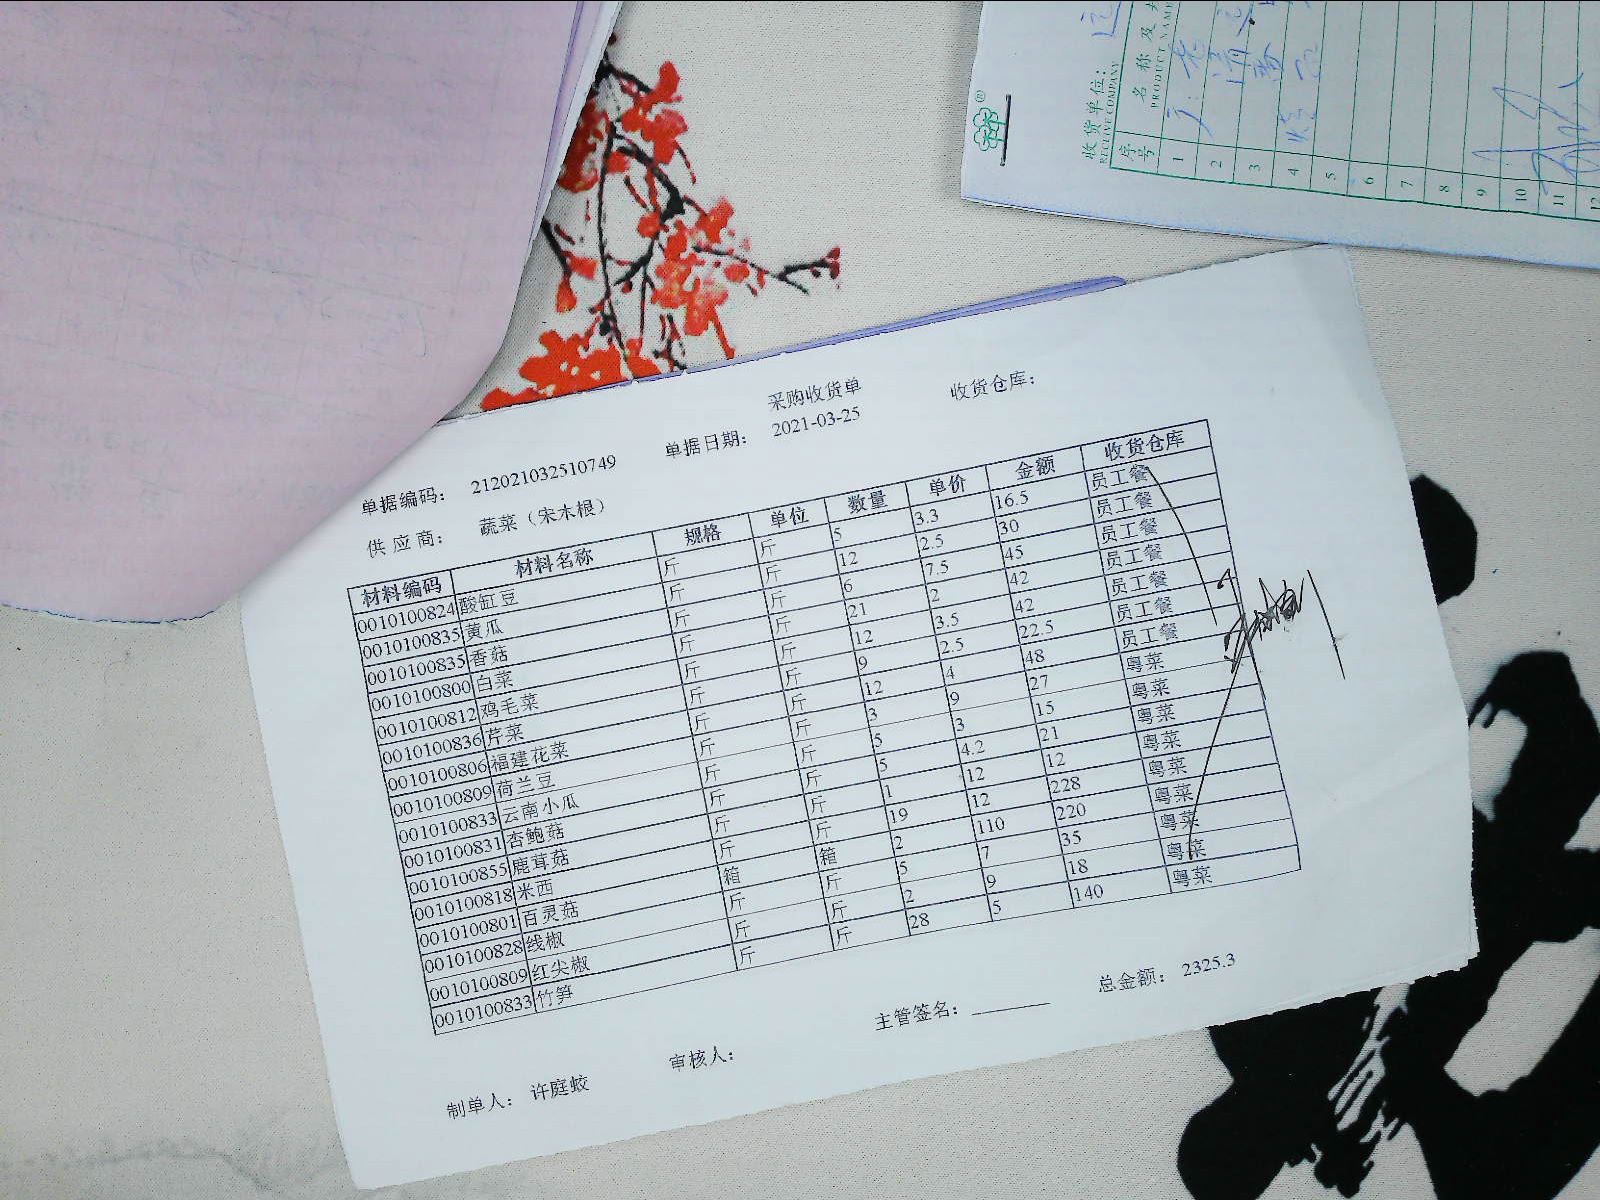 收货单位：
RECEIVE COMPANY
序号 名称及
PRODUCT NAME
1
2
3
4
5
6
7
8
9
10
11
12
采购收货单
单据编码： 212021032510749 单据日期： 2021-03-25 收货仓库：
供应商： 蔬菜（宋木根）
材料编码 材料名称 规格 单位 数量 单价 金额 收货仓库
0010100824 酸缸豆 斤 斤 5 3.3 16.5 员工餐
0010100835 黄瓜 斤 斤 12 2.5 30 员工餐
0010100835 香菇 斤 斤 6 7.5 45 员工餐
0010100800 白菜 斤 斤 21 2 42 员工餐
0010100812 鸡毛菜 斤 斤 12 3.5 42 员工餐
0010100836 芹菜 斤 斤 9 2.5 22.5 员工餐
0010100806 福建花菜 斤 斤 12 4 48 员工餐
0010100809 荷兰豆 斤 斤 3 9 27 粤菜
0010100833 云南小瓜 斤 斤 5 3 15 粤菜
0010100831 杏鲍菇 斤 斤 5 4.2 21 粤菜
0010100855 鹿茸菇 斤 斤 1 12 12 粤菜
0010100818 米西 斤 斤 19 12 228 粤菜
0010100801 百灵菇 箱 箱 2 110 220 粤菜
0010100828 线椒 斤 斤 5 7 35 粤菜
0010100809 红尖椒 斤 斤 2 9 18 粤菜
0010100833 竹笋 斤 斤 28 5 140 粤菜
主管签名： 总金额： 2325.3
制单人： 许庭蛟 审核人：